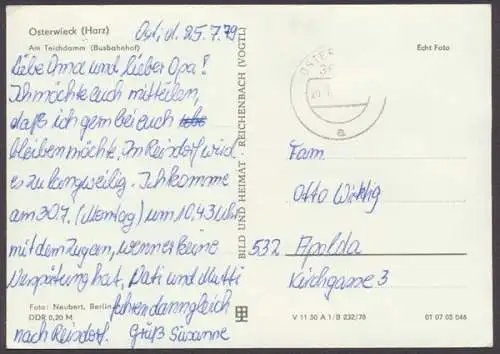 Osterwieck (Harz)
Ost, d. 25.7.79
Am Teichdamm (Busbahnhof)
Liebe Oma und lieber Opa!
Ich möchte euch mitteilen,
daß ich gern bei euch
bleiben möchte. In Reisdorf wird
es zu langweilig. Ich komme
am 30.7. (Montag) um 10.43 Uhr
mit dem Zug an, wenn er keine
Verspätung hat. Vati und Mutti
fahren dann gleich
nach Reisdorf. Gruß Susanne
Foto: Neubert, Berlin
DDR 0,20 M
BILD UND HEIMAT · REICHENBACH (VOGTL)
Echt Foto
OSTER
a
Fam.
Otto
532 Apolda
Kirchgasse 3
V 11 50 A 1/B 232/78
01 07 05 046